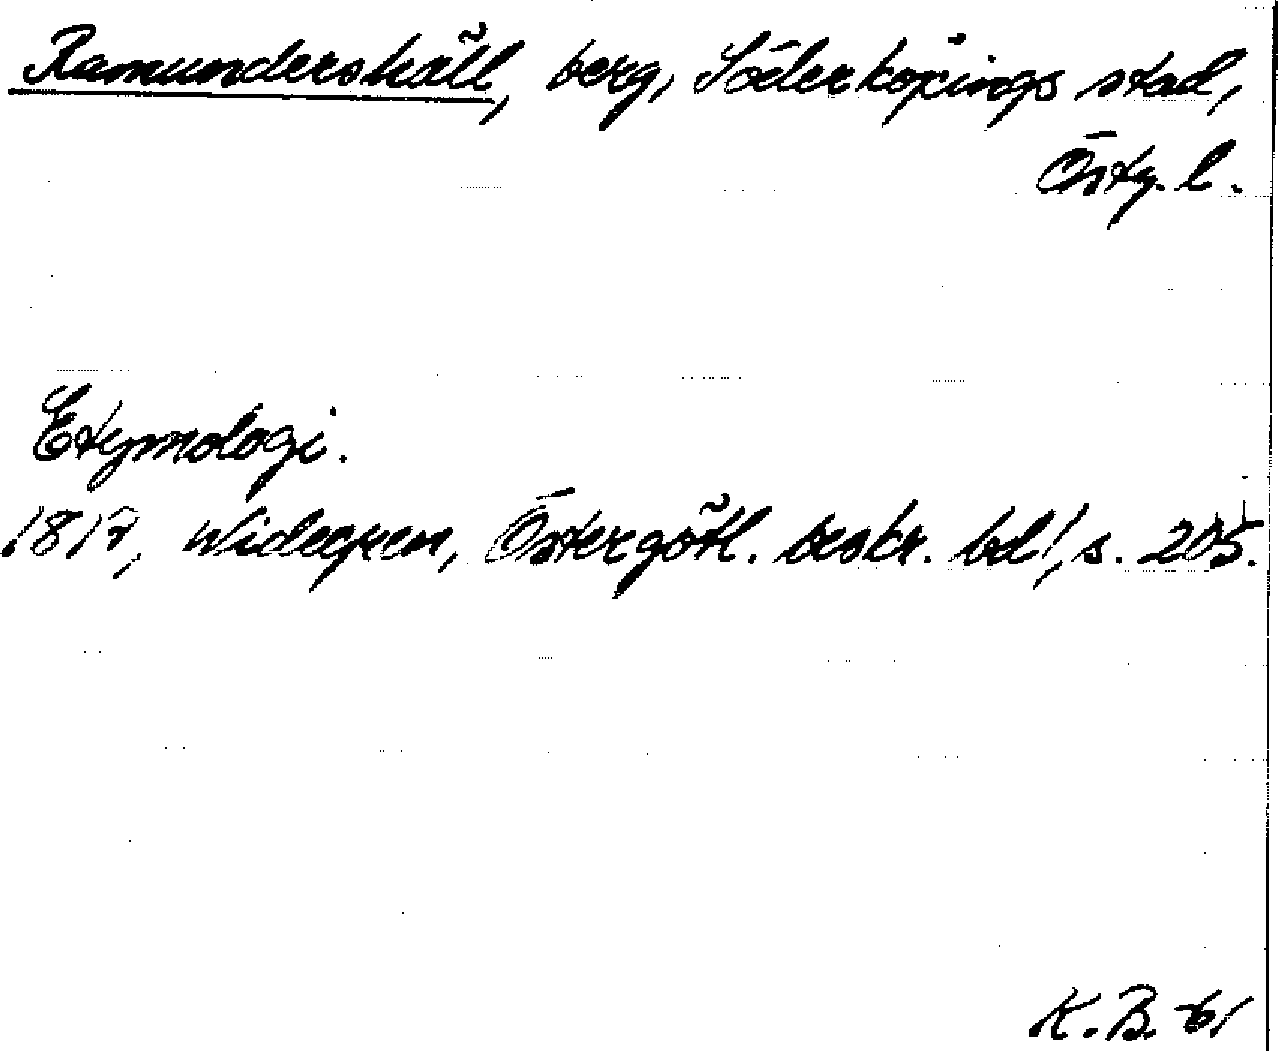 Ramunderskäll, berg, Söderköpings stad,
Östg. l.
Etymologi.
1817, Widegren, Östergötl. beskr. bd 1, s. 205.
K.B. -61